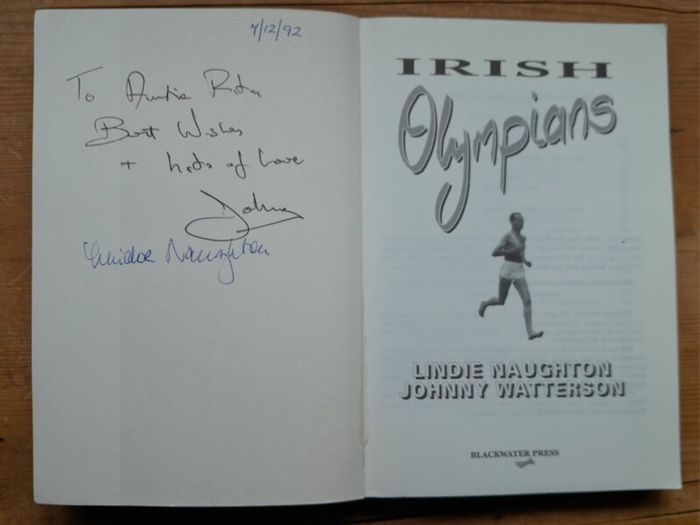 7/12/92
To Auntie Rita
Best Wishes
+ lots of love
Johnny
Lindie Naughton
IRISH
Olympians
LINDIE NAUGHTON
JOHNNY WATTERSON
BLACKWATER PRESS